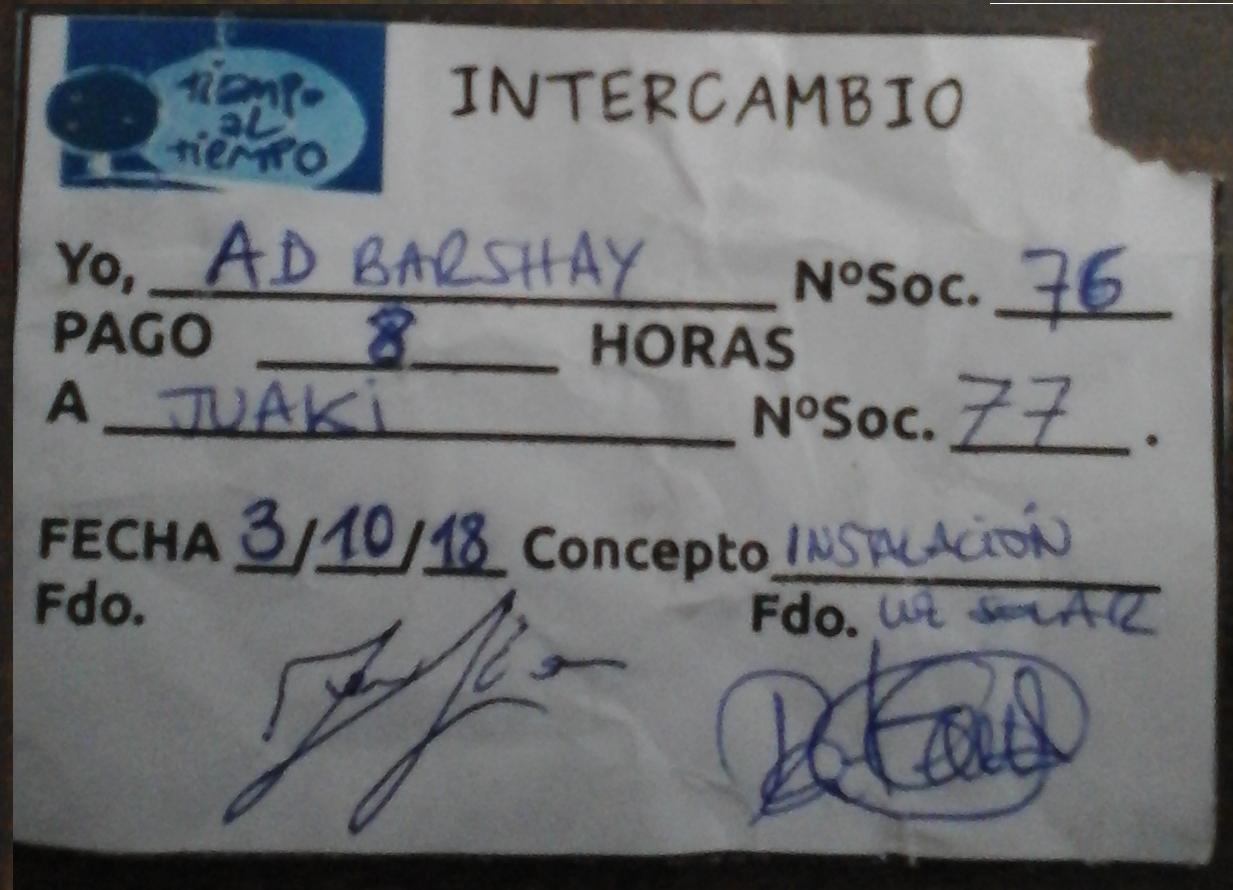 tiempo
al
tiempo
INTERCAMBIO
Yo, AD BARSHAY NºSoc. 76
PAGO 8 HORAS
A JUAKi NºSoc. 77.
FECHA 3/10/18 Concepto INSTALACIÓN
Fdo. Fdo. SOLAR